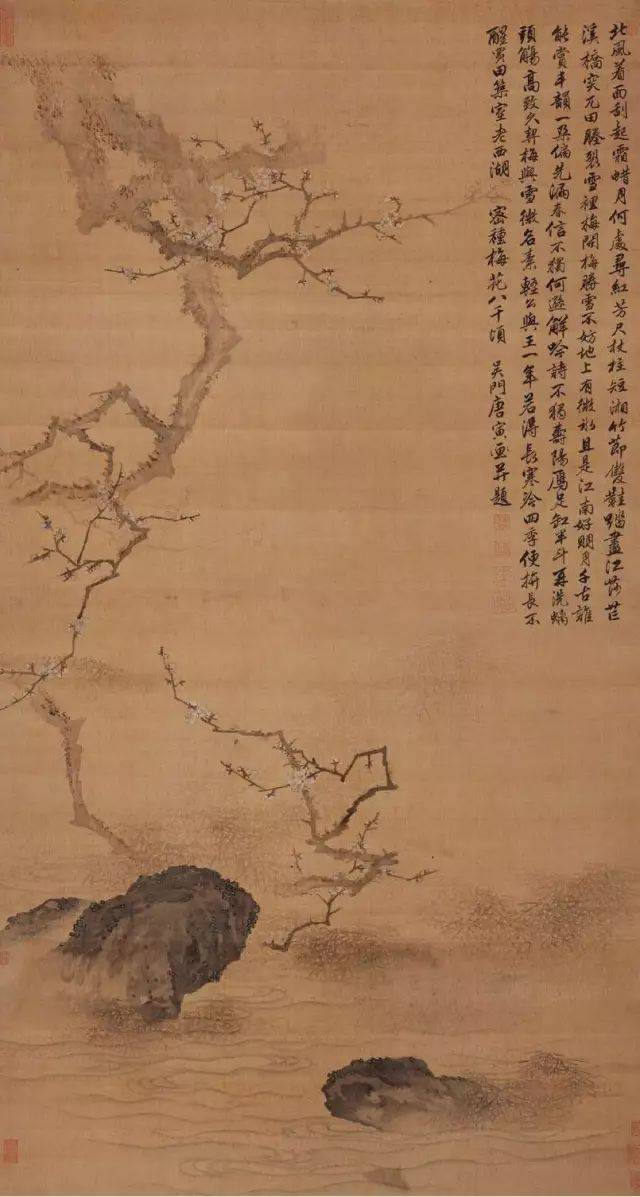 北風着面刮起霜蜡月何處尋紅芳尺杖柱短湘竹節雙鞋踏盡江莎芒
溪橋突兀田塍裂雪裡梅開梅勝雪不妨地上有微冰且是江南好明月千古誰
能賞半韻一朶偏先漏春信不獨何遜解吟詩不獨壽陽足缸半斗再洗
頭觴高致久契梅與雪微名棄輕公與王一年若得長寒冷四季便拚長不
醒買田築室老西湖密種梅花八千頃 吳門唐寅画并題